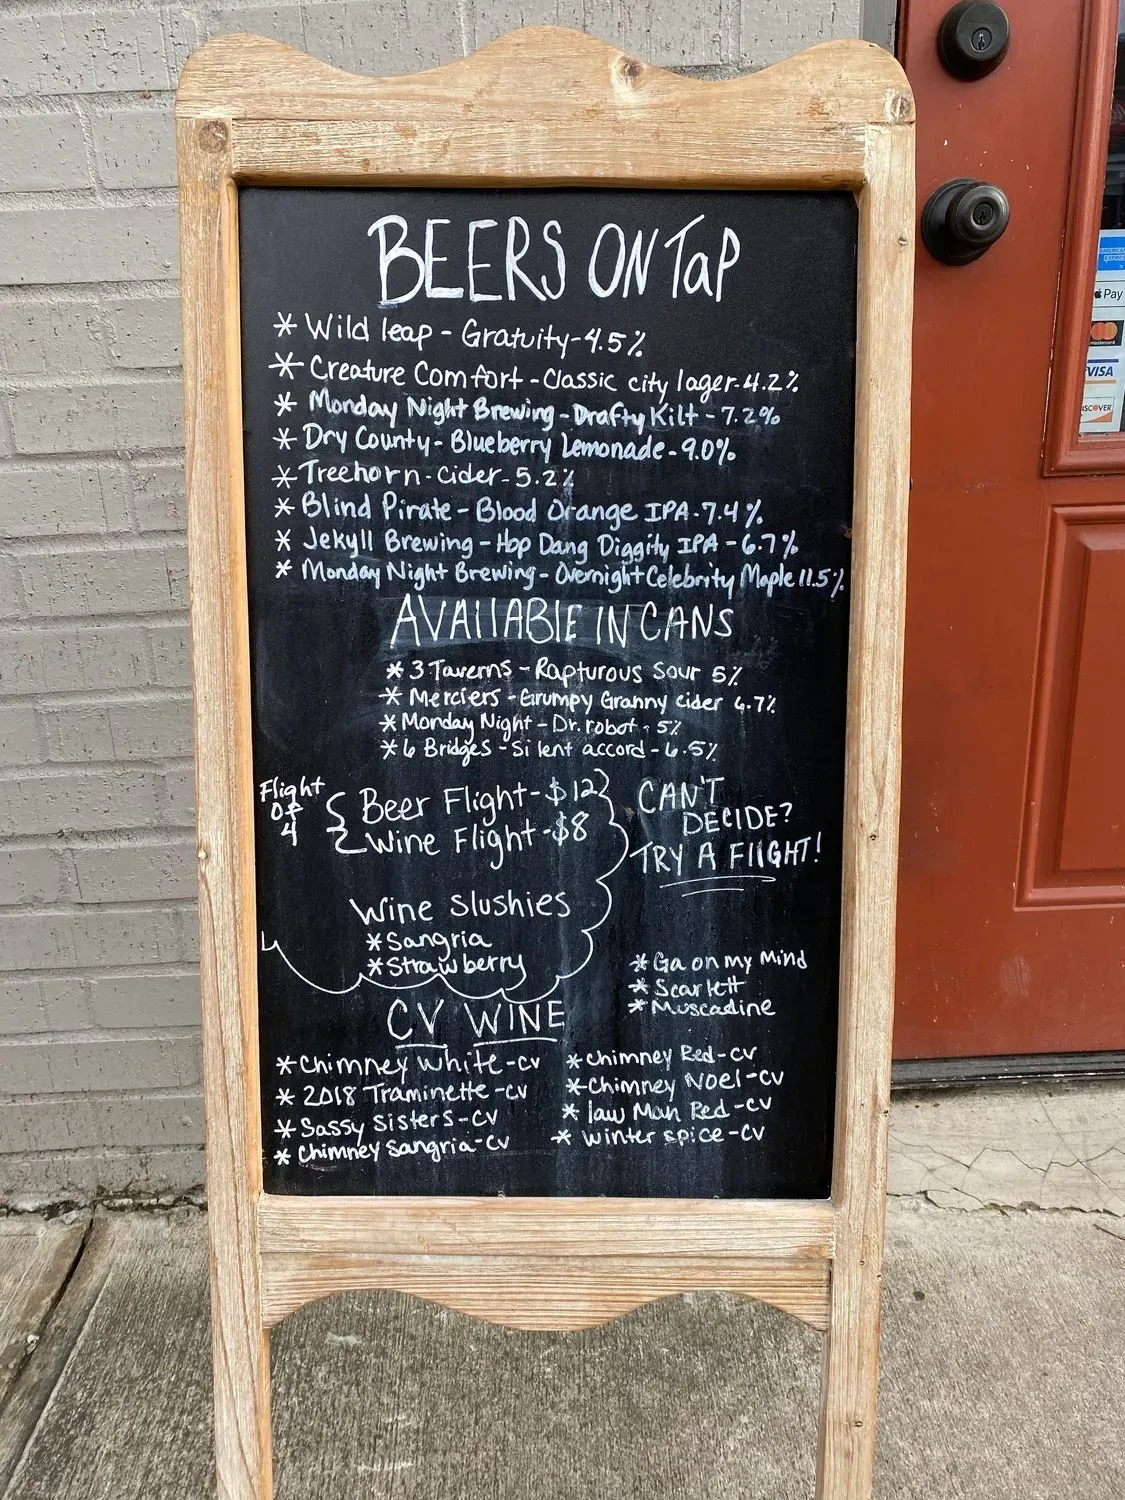 BEERS ON TaP
* Wild leap - Gratuity - 4.5%
* Creature Comfort - Classic city lager - 4.2%
* Monday Night Brewing - Drafty Kilt - 7.2%
* Dry County - Blueberry Lemonade - 9.0%
* Treehorn - Cider - 5.2%
* Blind Pirate - Blood Orange IPA - 7.4%
* Jekyll Brewing - Hop Dang Diggity IPA - 6.7%
* Monday Night Brewing - Overnight Celebrity Maple 11.5%
AVAILABLE IN CANS
* 3 Taverns - Rapturous Sour 5%
* Merciers - Grumpy Granny cider 6.7%
* Monday Night - Dr. robot - 5%
* 6 Bridges - Silent accord - 6.5%
Flight
OF
4
Beer Flight - $12
Wine Flight - $8
CAN'T
DECIDE?
TRY A FlIGHT!
Wine Slushies
* Sangria
* Strawberry
* Ga on my Mind
* Scarlett
* Muscadine
CV WINE
* Chimney White - cv
* 2018 Traminette - cv
* Sassy Sisters - cv
* Chimney Sangria - cv
* Chimney Red - cv
* Chimney Noel - cv
* law Man Red - cv
* Winter spice - cv
AMERICAN
EXPRESS
Pay
mastercard
VISA
ISCOVER